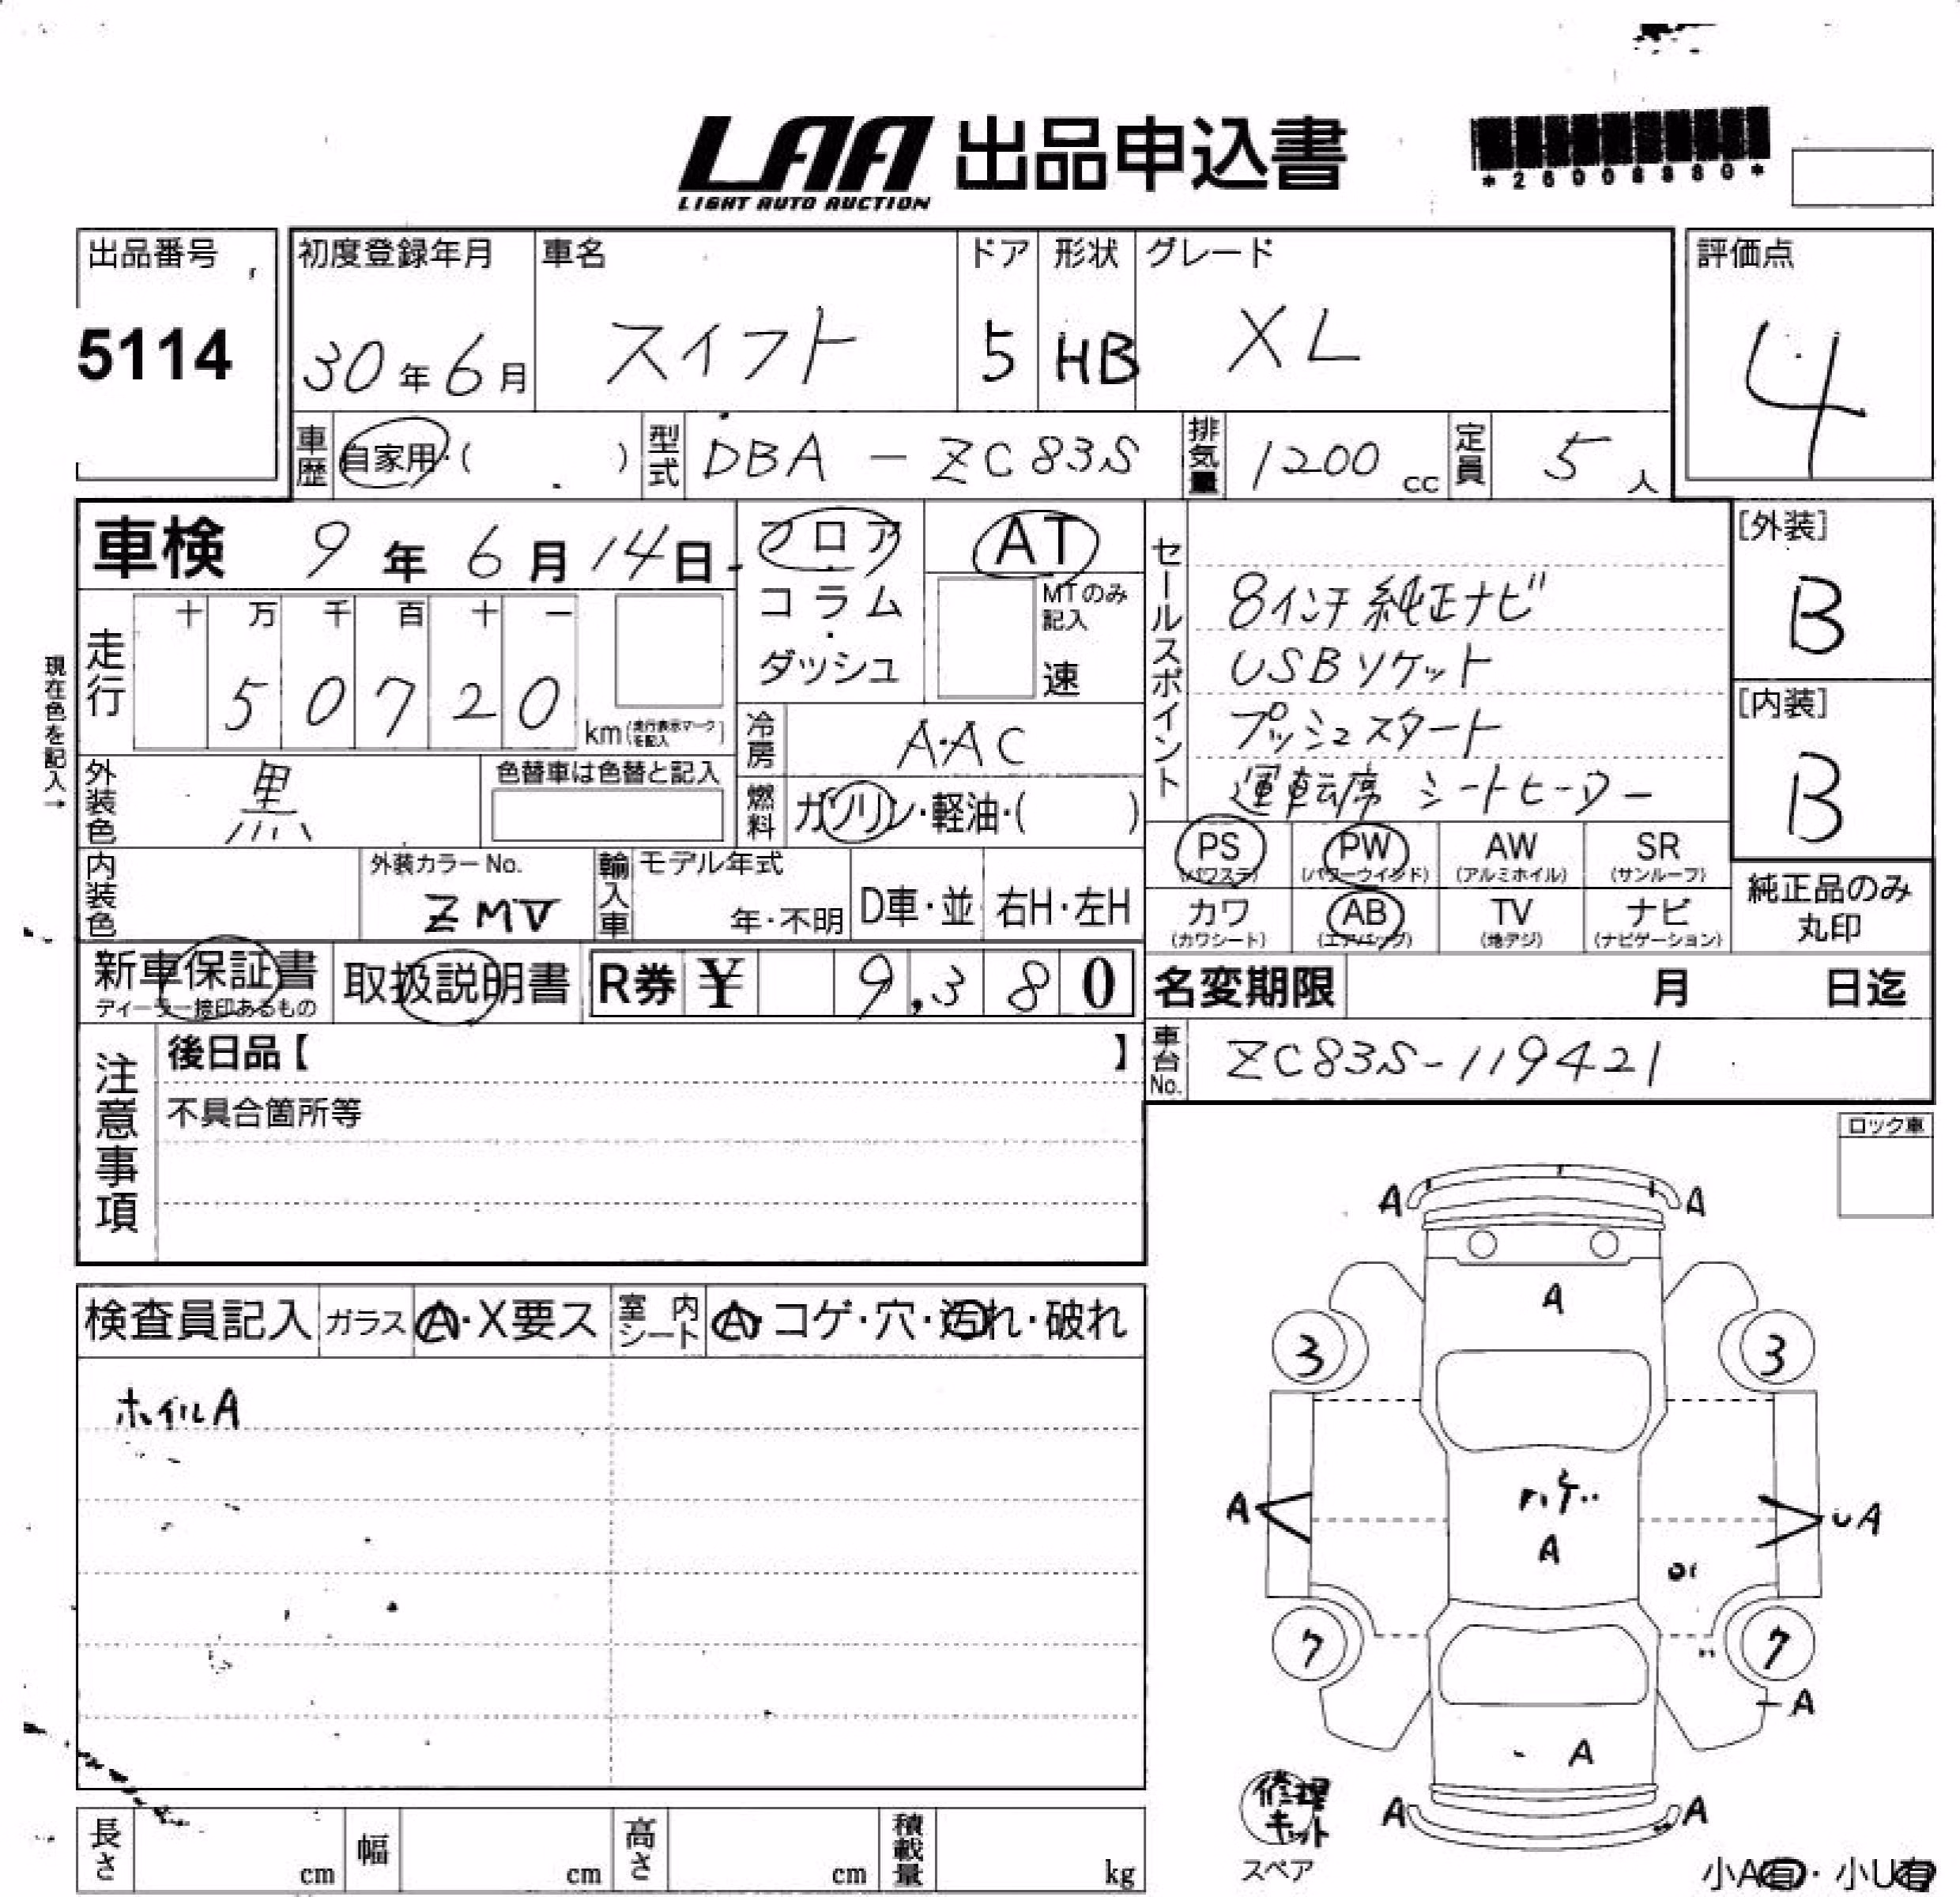 LAA 出品申込書
LIGHT AUTO AUCTION
*26008880*
出品番号
5114
初度登録年月
30年6月
車名
スイフト
ドア
5
形状
HB
グレード
XL
評価点
4
車歴 自家用・( )
型式 DBA-ZC83S
排気量 1200cc
定員 5人
車検 9年6月14日
フロア・コラム・ダッシュ
AT
MTのみ記入
速
現在色を記入→
走行
十 万 千 百 十 一
5 0 7 2 0 km(走行表示マークを記入)
冷房 A・AC
燃料 ガソリン・軽油・( )
外装色 黒
色替車は色替と記入
内装色
外装カラーNo.
ZMV
輸入車 モデル年式
年・不明
D車・並
右H・左H
セールスポイント
8インチ純正ナビ
USBソケット
プッシュスタート
運転席シートヒーター
[外装]
B
[内装]
B
PS (パワステ)
PW (パワーウインド)
AW (アルミホイル)
SR (サンルーフ)
カワ (カワシート)
AB (エアバック)
TV (地デジ)
ナビ (ナビゲーション)
純正品のみ丸印
新車保証書
ディーラー捺印あるもの
取扱説明書
R券 ¥ 9,380
名変期限 月 日迄
車台No. ZC83S-119421
注意事項
後日品【 】
不具合箇所等
ロック車
検査員記入 ガラス A・X要ス 室内シート A・コゲ・穴・汚れ・破れ
ホイルA
A A
A
3 3
A UA
A
7 7
A
A
A A
修理キット
スペア
小A有・小U有
長さ cm
幅 cm
高さ cm
積載量 kg